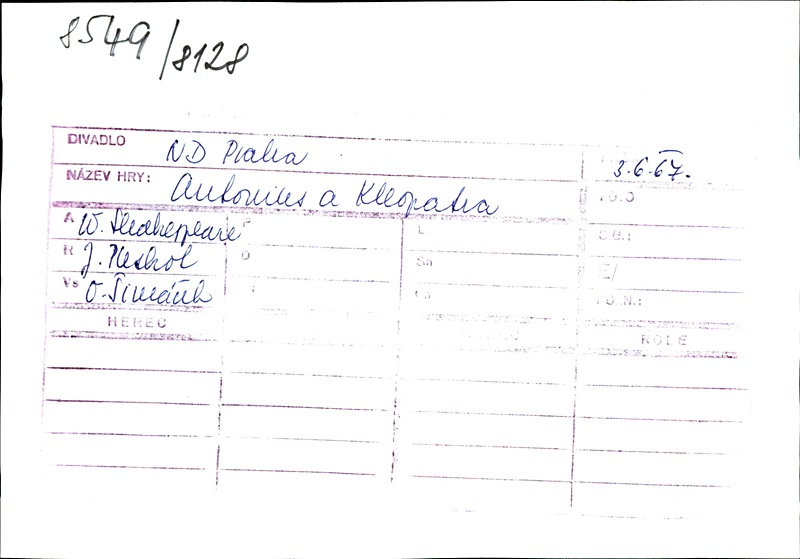 8549/8128
DIVADLO ND Praha 3.6.67.
NÁZEV HRY: Antonius a Kleopatra
A W. Shakespeare L
R J. Pleskot D
Vs O. Šimáček
HEREC ROLE